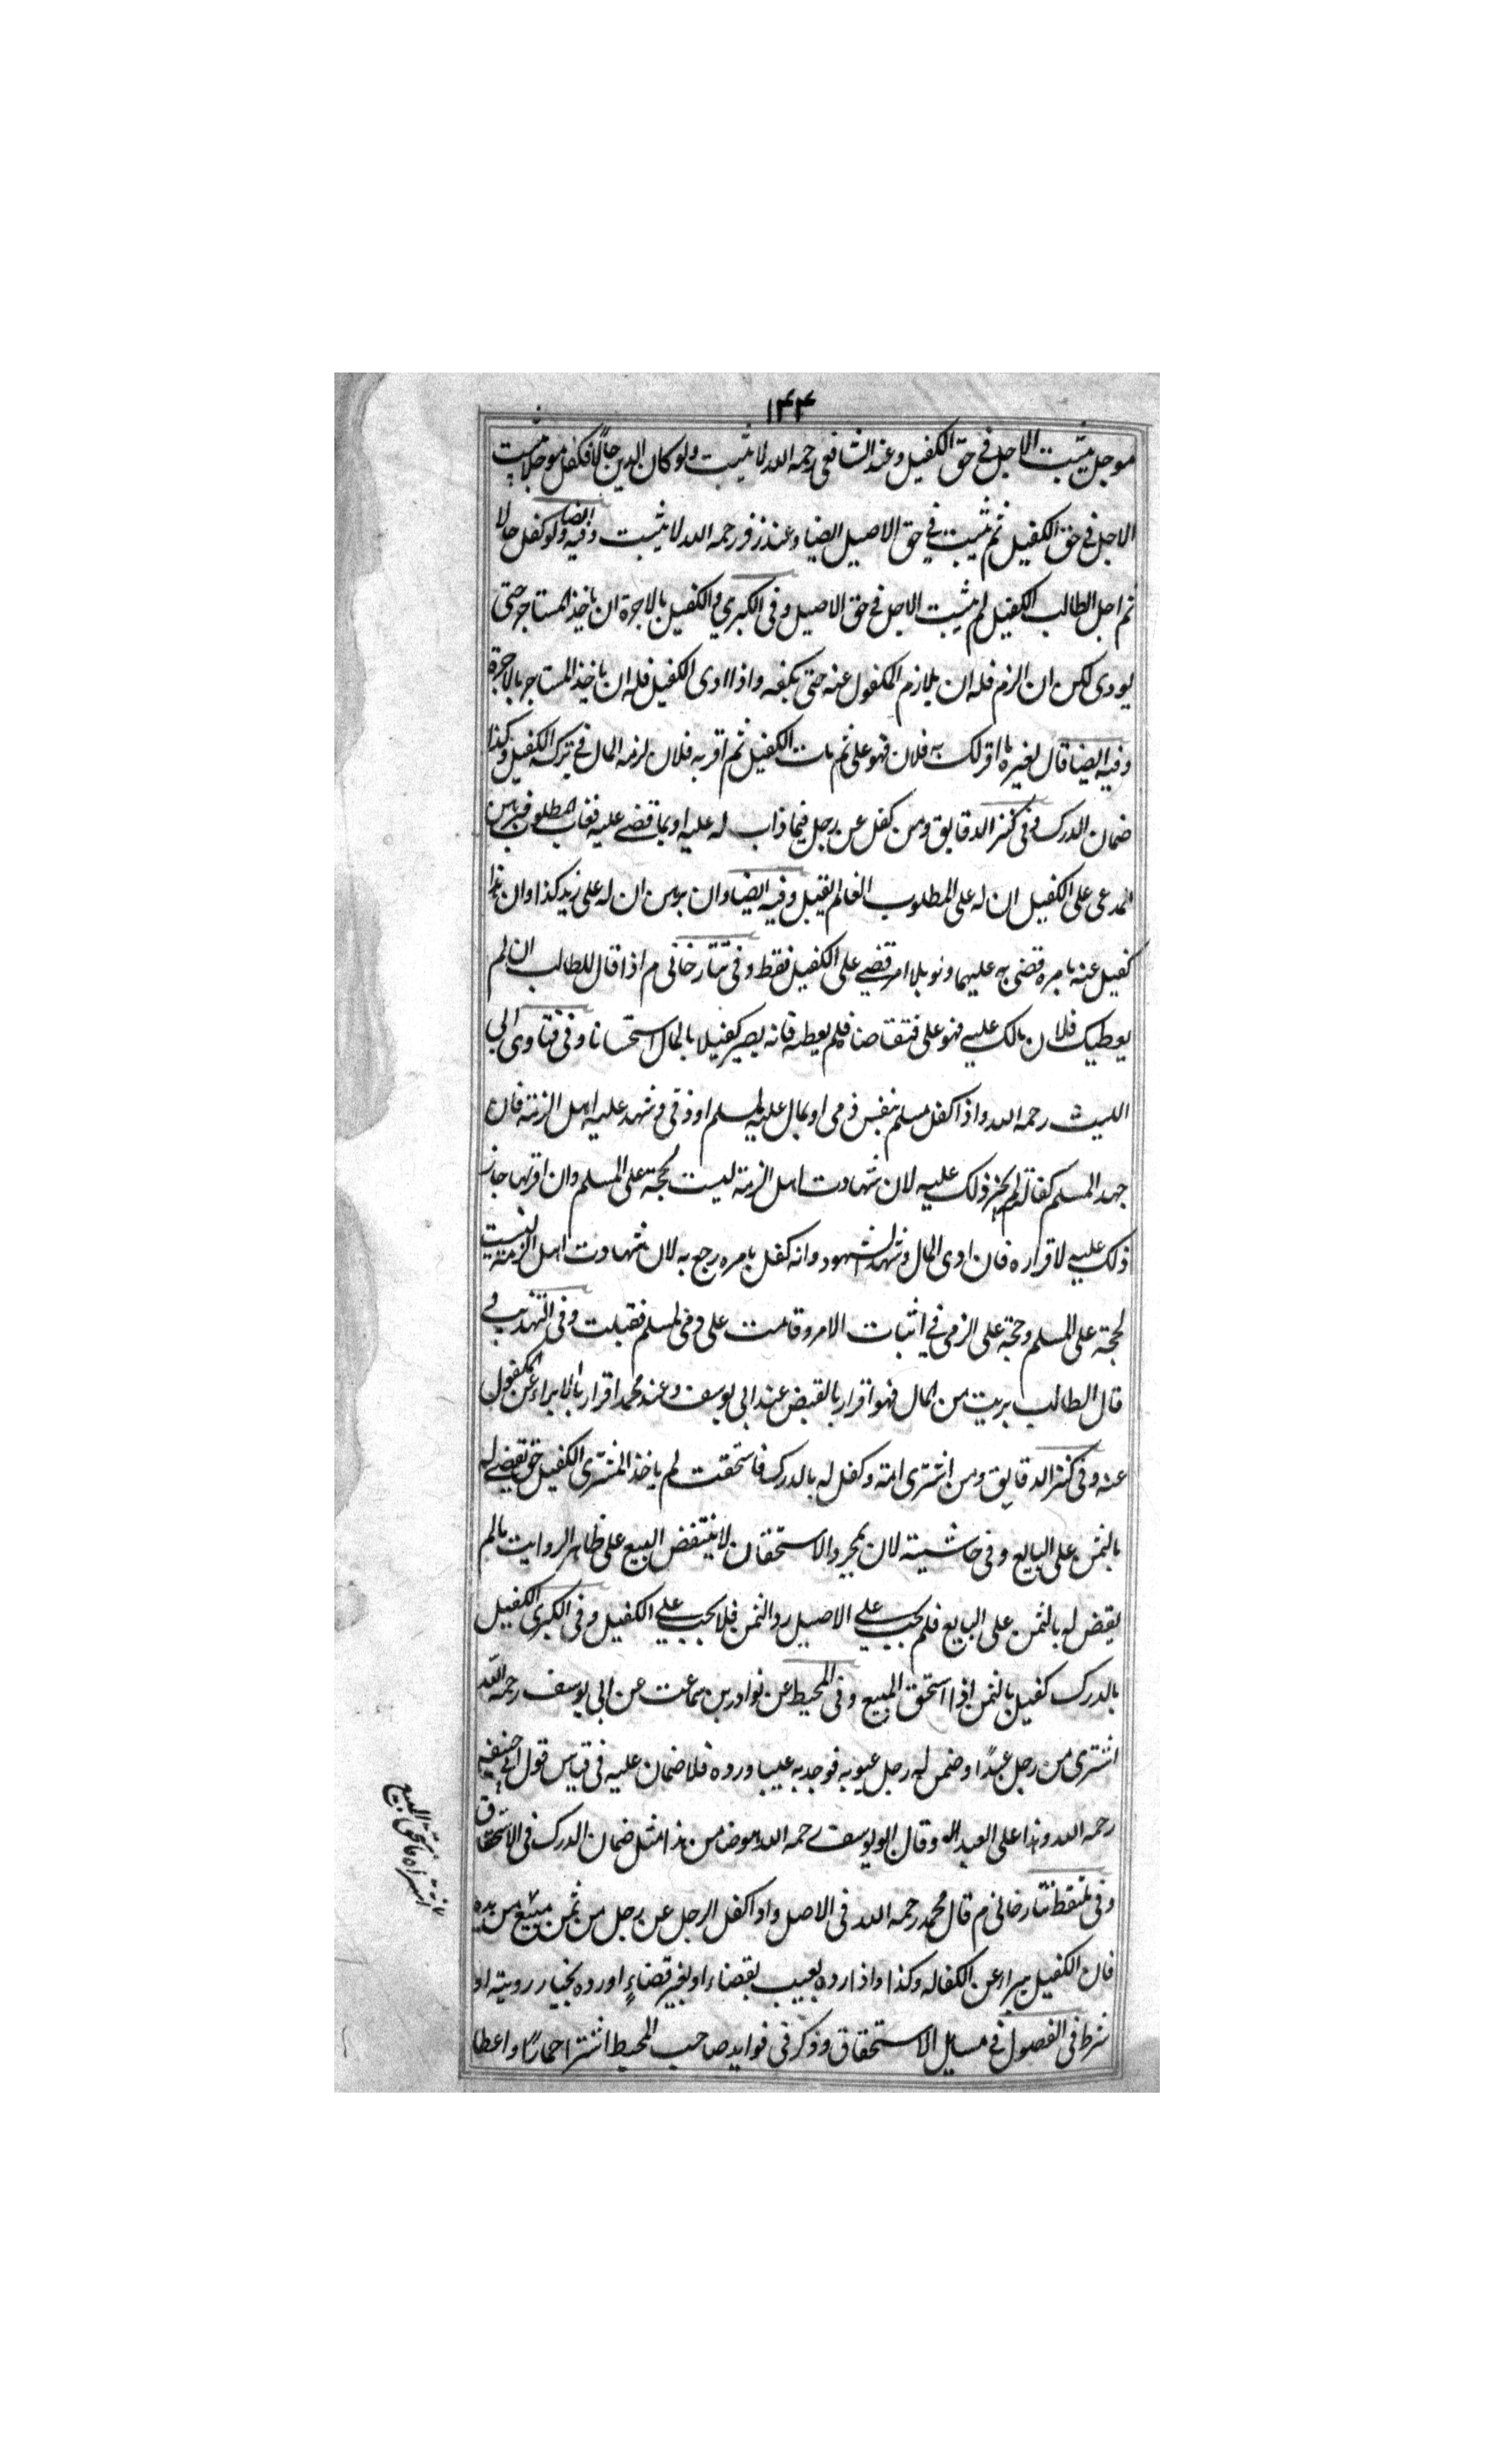 ۱۴۴
موجل یثبت الاجل فی حق الکفیل وعند الشافعی رحمه الله لا یثبت ولو کان الدین حالًا فکفل موجلا یثبت
الاجل فی حق الکفیل ثم یثبت فی حق الاصیل ایضا وعند زفر رحمه الله لا یثبت وفیه ایضا ولو کفل حالا
ثم اجل الطالب الکفیل لم یثبت الاجل فی حق الاصیل وفی الکبری والکفیل بالاجرة ان یاخذ المستاجر حتی
یودی لکن ان الزم فله ان یلازم المکفول عنه حتی یکفه واذا ادی الکفیل فله ان یاخذ المستاجر بالاجرة
وفیه ایضا قال لغیره ما اقر لک به فلان فهو علی ثم مات الکفیل ثم اقر به فلان لزمه المال فی ترکه الکفیل وکذا
ضمان الدرک وفی کنز الدقایق ومن کفل عن رجل فیما ذاب له علیه او بما قضے علیه فغاب المطلوب فبرهن
المدعی علی الکفیل ان له علی المطلوب الفا لم یقبل وفیه ایضا وان برهن ان له علی زید کذا وان هذا
کفیل عنه بامره قضی به علیهما ولو بلا امر قضے علی الکفیل فقط وفی تتار خانی م اذا قال للطالب ان لم
یعطیک فلان مالک علیه فهو علی فتقاضا فلم یعطه فانه یصیر کفیلا بالمال استحسانا وفی فتاوی ابی
اللیث رحمه الله واذا کفل مسلم بنفس ذمی او بمال علیه لمسلم او ذمی وشهد علیه اهل الذمة فان
جهد المسلم کفالته لم یجز ذلک علیه لان شهادت اهل الذمة لیست بحجة علی المسلم وان اقر بها جاز
ذلک علیه لاقراره فان ادی المال وشهد الشهود وانه کفل بامره رجع به لان شهادت اهل الذمة لیست
بحجة علی المسلم وحجة علی الذمی فی اثبات الامر وقامت علی ذمی لمسلم فقبلت وفی التهذیب
قال الطالب بریت من المال فهو اقرار بالقبض عند ابی یوسف وعند محمد اقرار بالابراء عن المکفول
عنه وفی کنز الدقایق ومن اشتری امة وکفل له بالدرک فاستحقت لم یاخذ المشتری الکفیل حتی یقضے له
بالثمن علی البایع وفی حاشیته لان بمجرد الاستحقاق لا ینتقض البیع علی ظاهر الروایت مالم
یقض له بالثمن علی البایع فلم یجب علی الاصیل رد الثمن فلا یجب علی الکفیل وفی الکبری الکفیل
بالدرک کفیل بالثمن اذا استحق المبیع وفی المحیط عن نوادر بن سماعت عن ابی یوسف رحمه الله
اشتری من رجل عبدًا وضمن له رجل عیوبه فوجد به عیبا ورده فلا ضمان علیه فی قیاس قول ابی حنیفه
رحمه الله وهذا علی العهدة وقال ابو یوسف رحمه الله هو ضامن هذا مثل ضمان الدرک فی الاستحقاق
وفی ملتقط تتار خانی م قال محمد رحمه الله فی الاصل واذا کفل الرجل عن رجل من ثمن مبیع من یده
فان الکفیل یبراء عن الکفاله وکذا واذا رده بعیب بقضاء او بغیر قضاءٍ او رده بخیار رویته او
شرط فی الفصول فی مسایل الاستحقاق وذکر فی فواید صاحب المحیط اشترا حمارًا واعطا